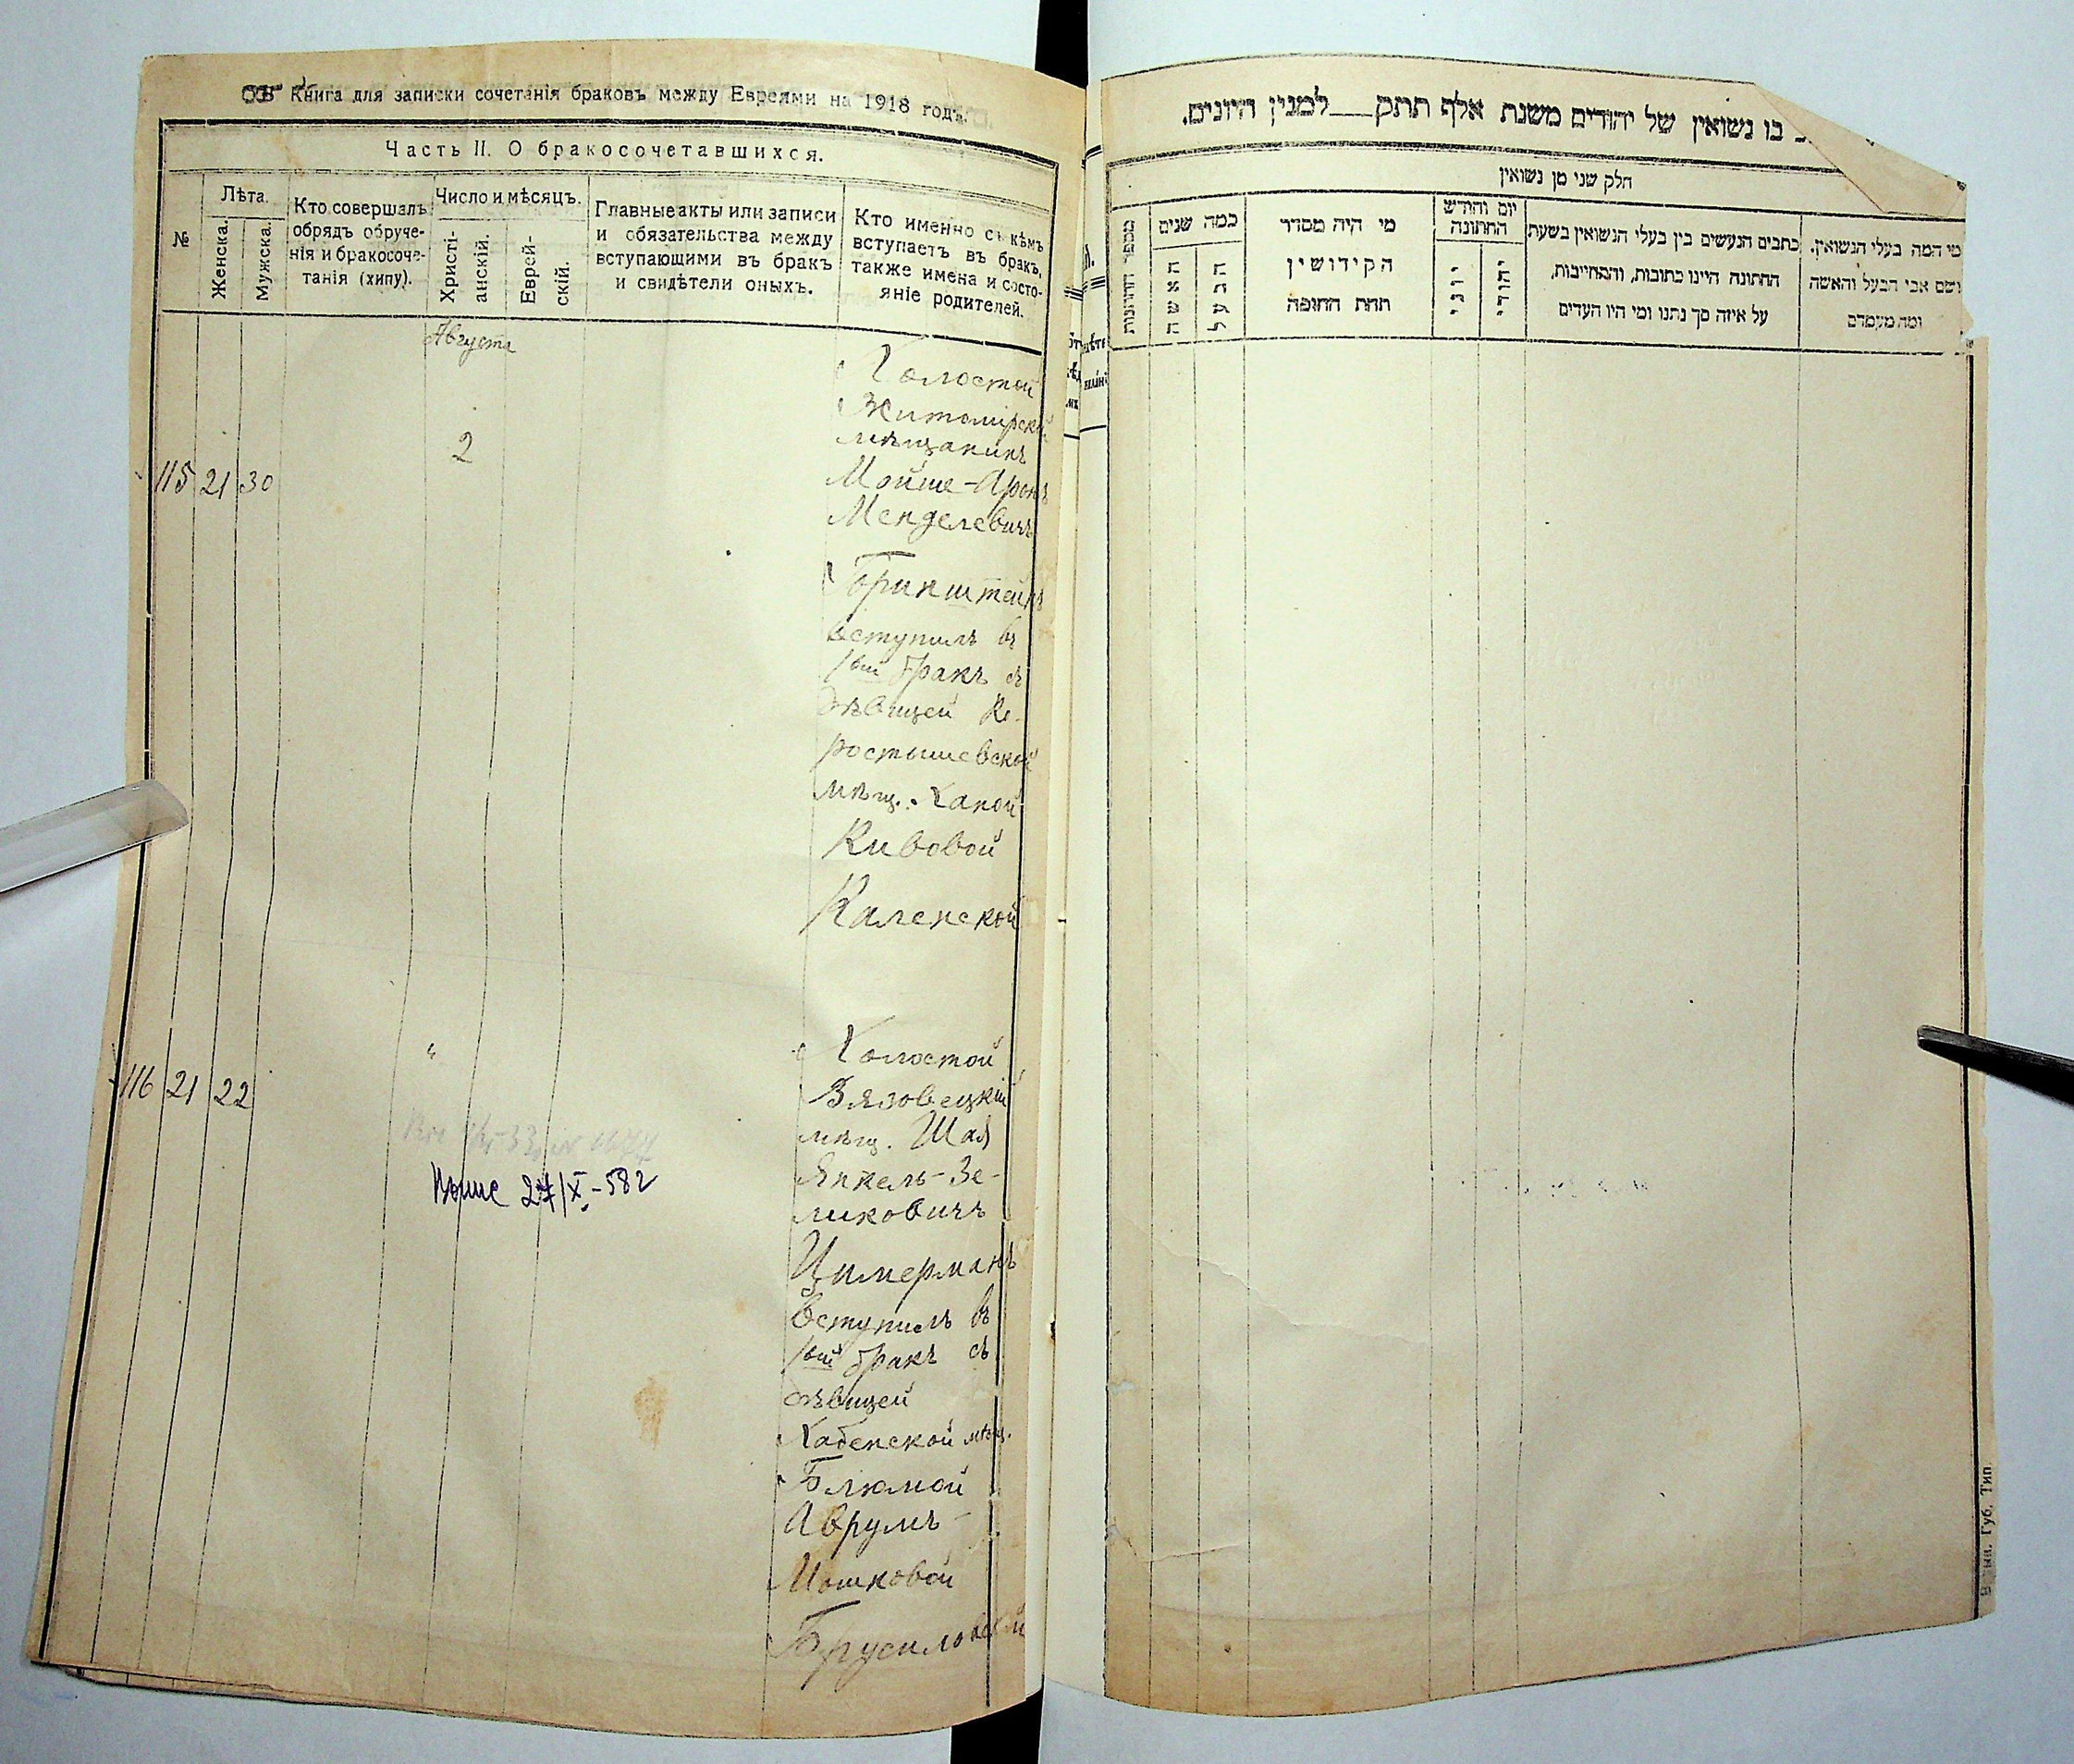 Книга для записки сочетанія браковъ между Евреями на 1918 годъ.
Часть II. О бракосочетавшихся.
№
Лѣта.
Женска.
Мужска.
Кто совершалъ
обрядъ обруче-
нія и бракосоче-
танія (хипу).
Число и мѣсяцъ.
Христі-
анскій.
Еврей-
скій.
Главные акты или записи
и обязательства между
вступающими въ бракъ
и свидѣтели оныхъ.
Кто именно съ кѣмъ
вступаетъ въ бракъ,
также имена и состо-
яніе родителей.
Августа
115 21 30
2
Холостой
Житомірскій
мѣщанинъ
Мойше-Аронъ
Менделевичъ
Гринштейнъ
вступилъ въ
1вый бракъ съ
дѣвицей Ко-
ростышевской
мѣщ. Ханой
Кивовой
Каленской
116 21 22
"
Холостой
Вязовецкій
мѣщ. Шая
Янкель-Зе-
ликовичъ
Цимерманъ
вступилъ въ
1вый бракъ съ
дѣвицей
Хабенской мѣщ.
Блюмой
Аврумъ-
Мошковой
Брусиловской
27/X-582
בו נשואין של יהודים משנת אלף תתק___למנין היונים.
חלק שני מן נשואין
מספר החתונות
כמה שנים
האשה
הבעל
מי היה מסדר
הקידושין
תחת החופה
יום וחודש
החתונה
יוני
יהודי
כתבים הנעשים בין בעלי הנשואין בשעת
החתונה היינו כתובות, והתחייבות,
על איזה סך נתנו ומי היו העדים
מי המה בעלי הנשואין,
ושם אבי הבעל והאשה
ומה מעמדם
Губ. Тип.